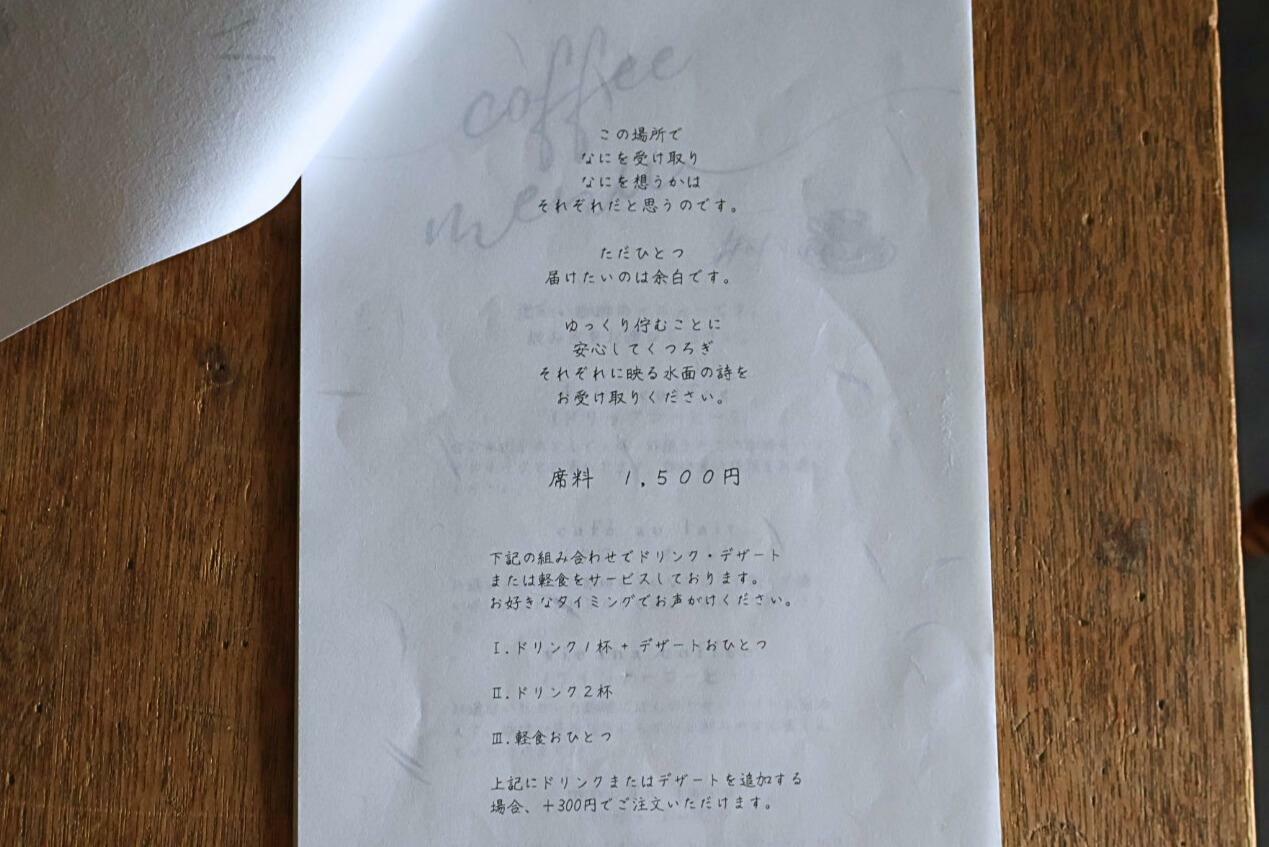 coffee
この場所で
なにを受け取り
なにを想うかは
それぞれだと思うのです。
ただひとつ
届けたいのは余白です。
ゆっくり佇むことに
安心してくつろぎ
それぞれに映る水面の詩を
お受け取りください。
席料 1,500円
café au lait
下記の組み合わせでドリンク・デザート
または軽食をサービスしております。
お好きなタイミングでお声がけください。
Ⅰ.ドリンク1杯+デザートおひとつ
Ⅱ.ドリンク2杯
Ⅲ.軽食おひとつ
上記にドリンクまたはデザートを追加する
場合、+300円でご注文いただけます。